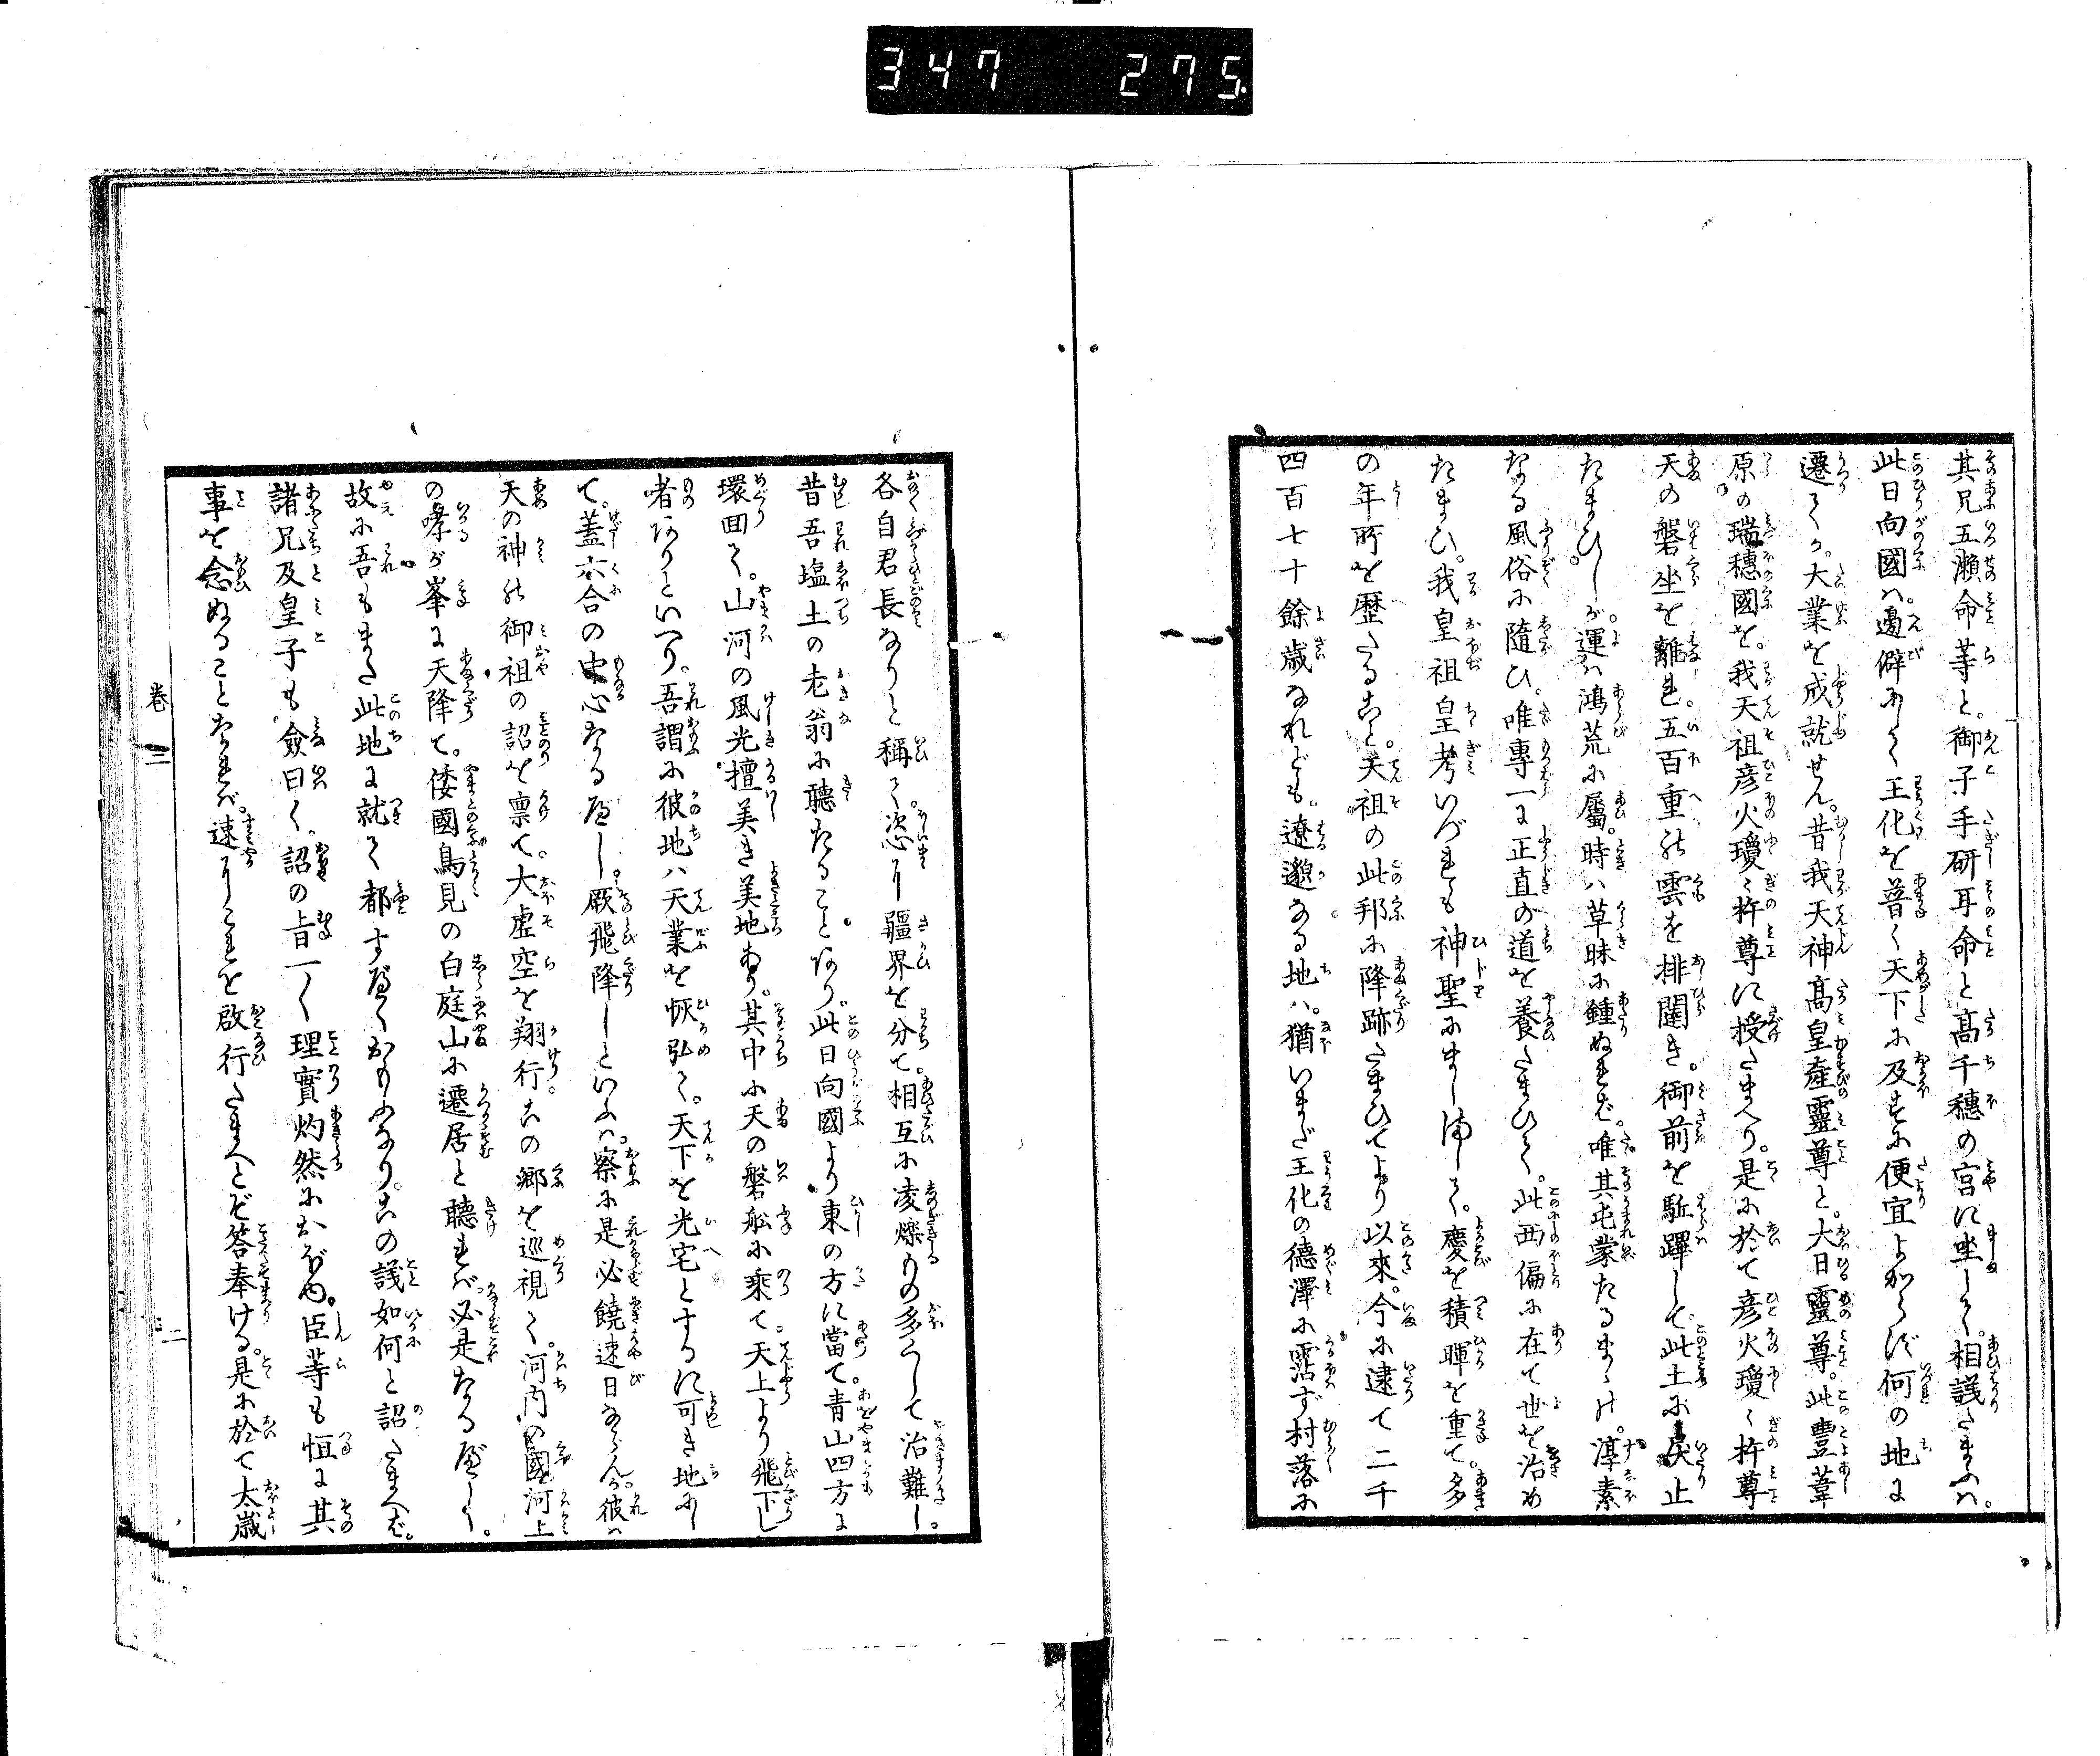 347 275
其兄五瀬命等と。御子手研耳命と高千穂の宮に坐しく。相議たまふハ。
此日向國ハ邊僻ふして王化を普く天下ふ及すふ便宜よからず何の地に
遷てか。大業を成就せん。昔我天神高皇産靈尊と。大日靈尊。此豐葦
原の瑞穗國を。我天祖彦火瓊〻杵尊に授たまへり。是ふ於て彦火瓊〻杵尊
天の磐坐を離れ。五百重の雲を排闓き。御前を駈蹕して此土ふ戻止
たまひしが。運ハ鴻荒ふ屬。時ハ草昧ふ鍾ぬれど。唯其屯蒙たるまゝの。淳素
なる風俗ふ隨ひ。唯專一に正直の道を養たまひて。此西偏ふ在て世を治め
たまひ。我皇祖皇考いづれも神聖ふまし〳〵て。慶を積暉を重て。多
の年所を歴たること。天祖の此邦ふ降跡たまひてより以來。今ふ逮て二千
四百七十餘歳なれども。遼邈なる地ハ。猶いまだ王化の德澤ふ霑ず村落ふ
各自君長なりと稱て。恣に疆界を分て。相互ふ凌爍もの多くして治難し。
昔吾塩土の老翁ふ聽たることあり。此日向國より東の方に當て。青山四方に
環囬て。山河の風光擅美き美地あり。其中ふ天の磐舩ふ乘て天上より飛下し
者ありといへり。吾謂ふ彼地ハ天業を恢弘て。天下を光宅とするに可き地ふし
て。蓋六合の中心なるべし。厥飛降しといふハ。察ふ是必饒速日ならんか。彼ハ
天の神の御祖の詔を禀て。大虚空を翔行。この郷を巡視て。河内の國河上
の哮が峯に天降て。倭國鳥見の白庭山ふ遷居と聽れバ必是なるべし。
故ふ吾もまた此地に就て都すべくおもふなり。この議如何と詔たまへば。
諸兄及皇子も僉曰く。詔の旨一〳〵理實灼然ふおぼゆ。臣等も恒に其
事を念ぬることなれバ。速にこれを啟行たまへとぞ答奉ける。是ふ於て太歳
卷三 二